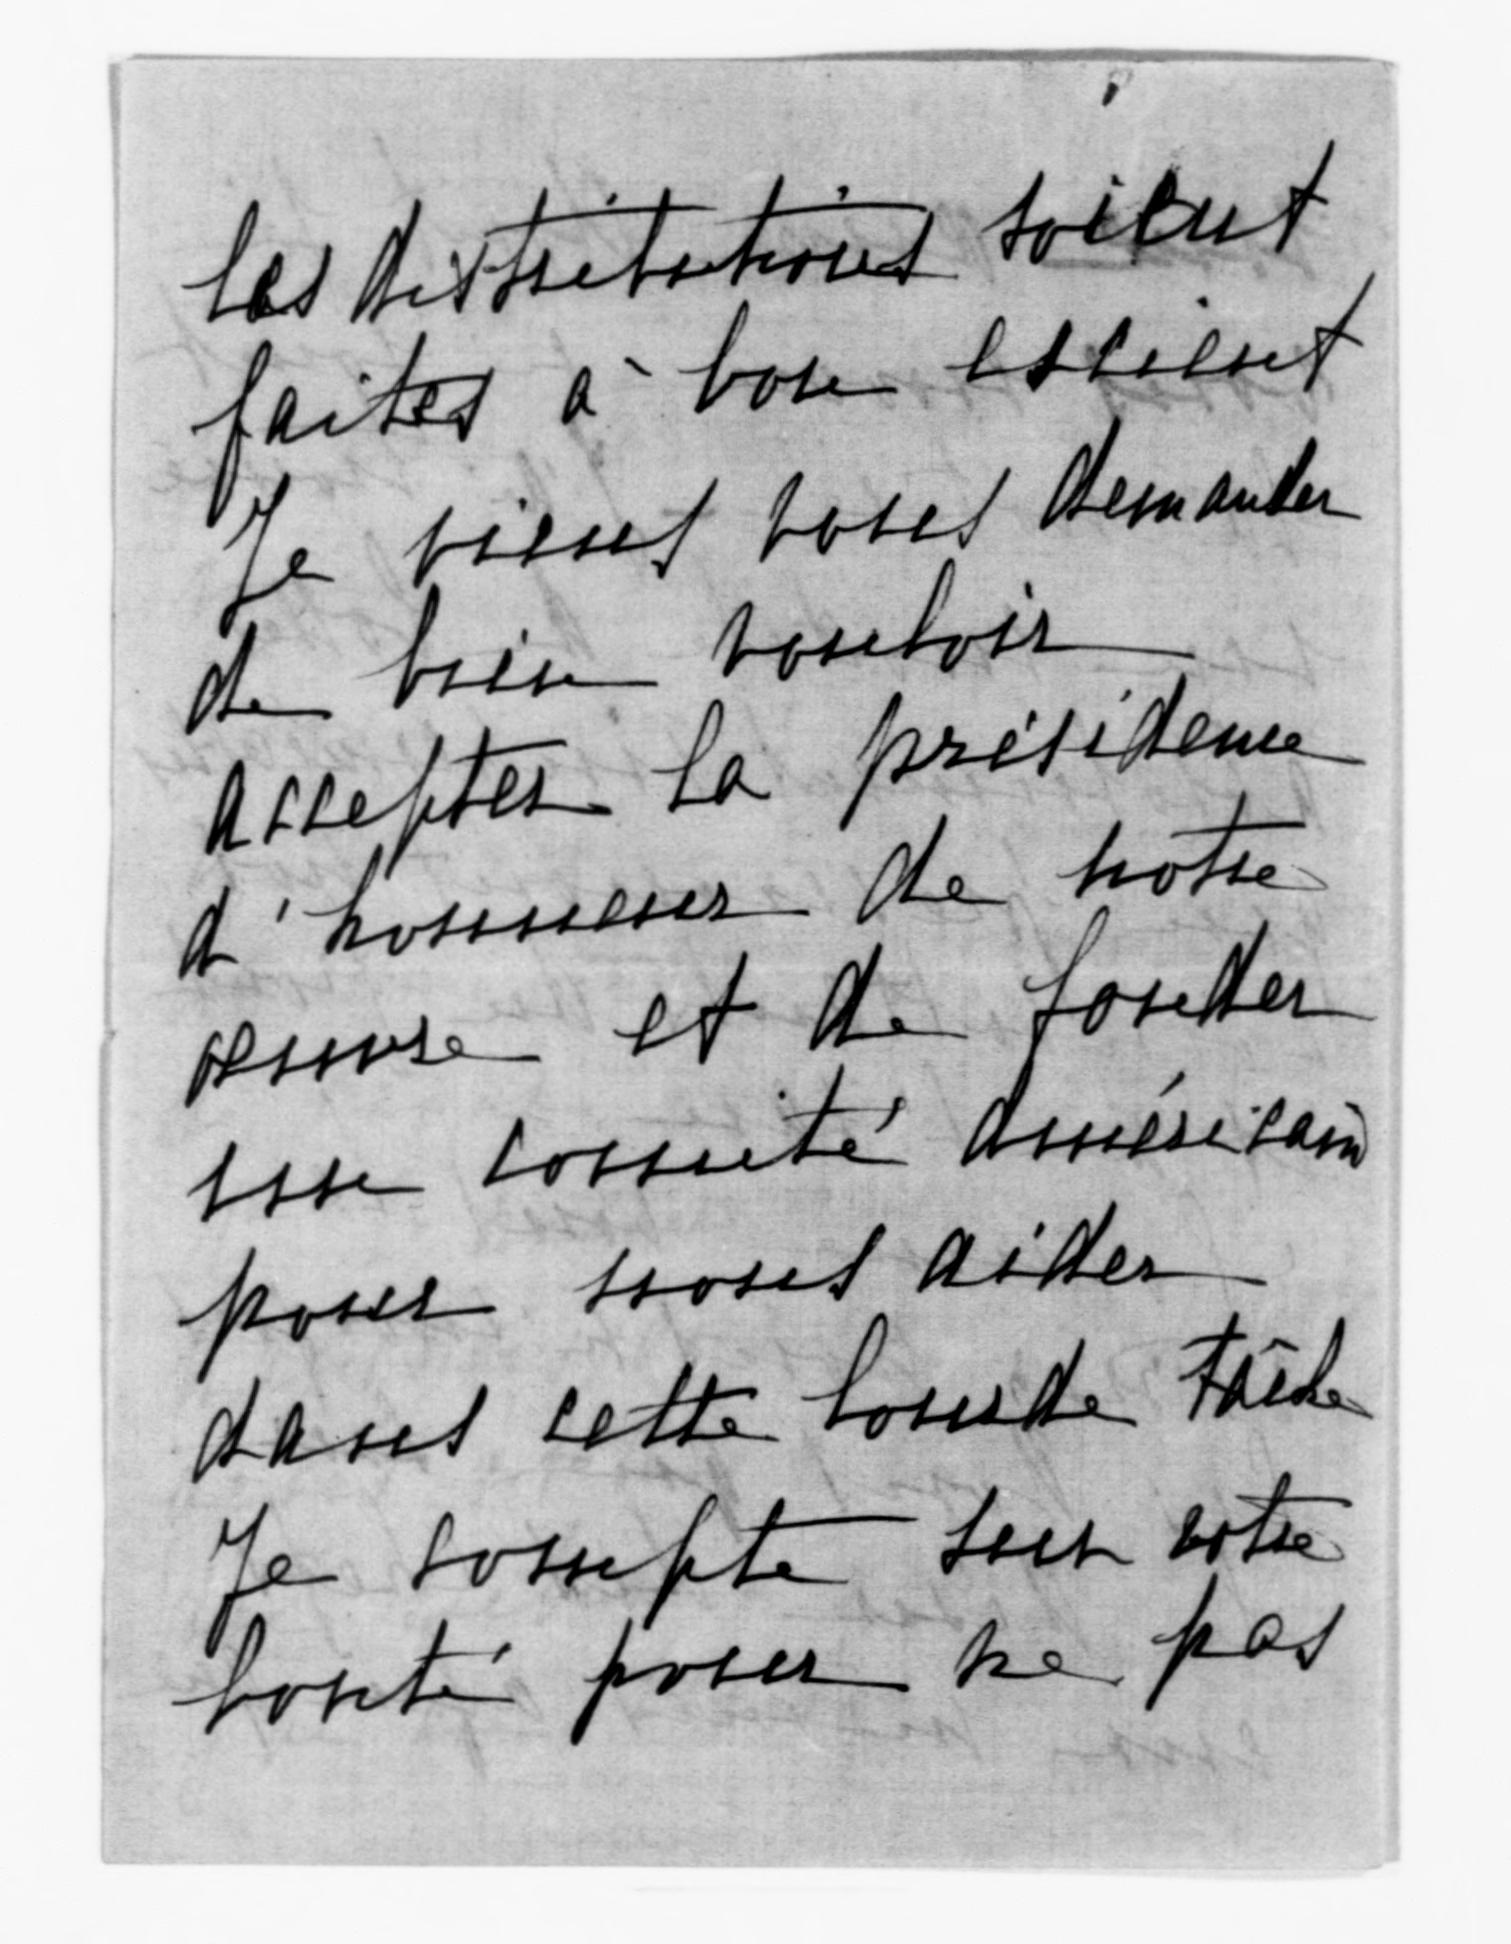 les distributions soient
faites à bon escient
Je viens vous demander
de bien vouloir
accepter la présidence
d'honneur de notre
œuvre et de fonder
une comité américain
pour nous aider
dans cette lourde tâche
Je compte sur votre
bonté pour ne pas